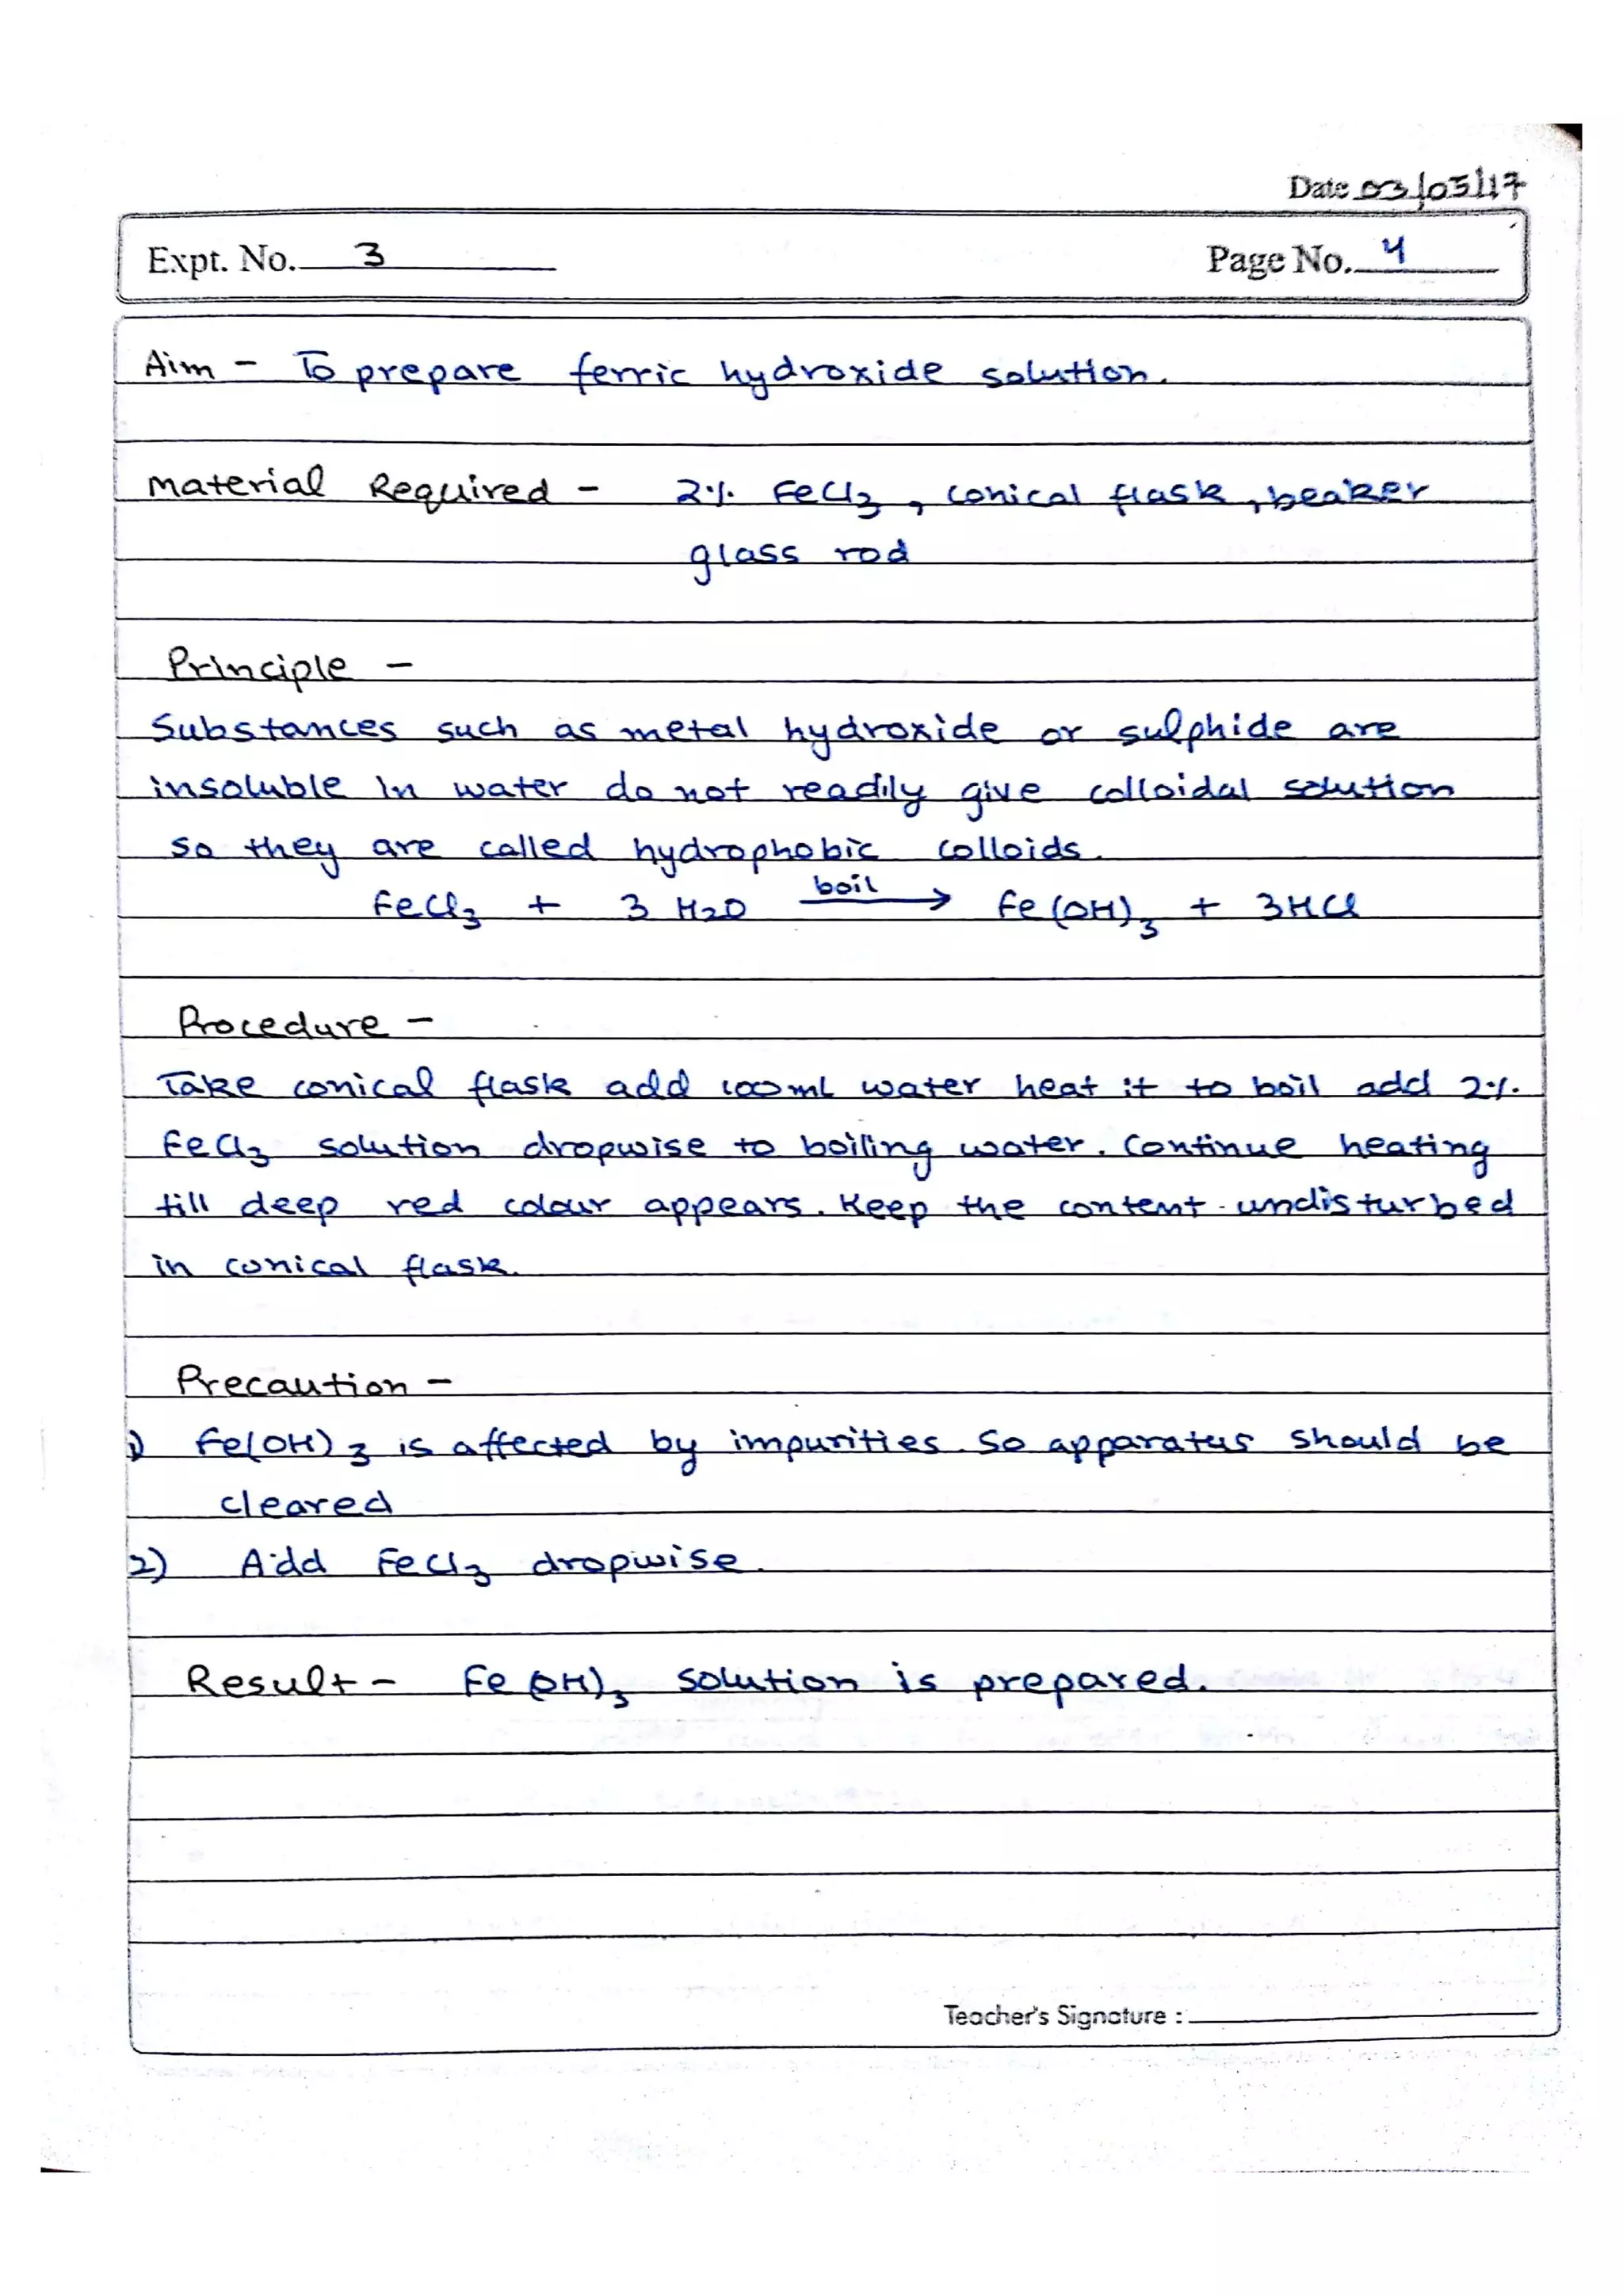 Date 03/05/17
Expt. No. 3 Page No. 4
Aim - To prepare ferric hydroxide solution.
Material Required - 2% FeCl3, conical flask, beaker
glass rod
Principle -
Substances such as metal hydroxide or sulphide are
insoluble in water do not readily give colloidal solution
so they are called hydrophobic colloids.
FeCl3 + 3 H2O boil → Fe(OH)3 + 3HCl
Procedure -
Take conical flask add 100ml water heat it to boil add 2%
FeCl3 solution dropwise to boiling water. Continue heating
till deep red colour appears. Keep the content undisturbed
in conical flask.
Precaution -
1) Fe(OH)3 is affected by impurities. So apparatus should be
cleared
2) Add FeCl3 dropwise.
Result - Fe(OH)3 solution is prepared.
Teacher's Signature :